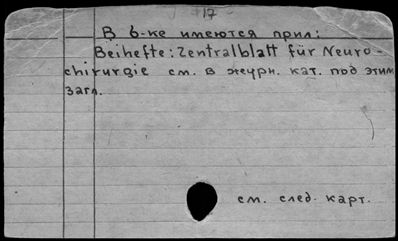 17
В б-ке имеются прил:
Beihefte: Zentralblatt für Neuro-
chirurgie см. в журн. кат. под этим
загл.
см. след. карт.